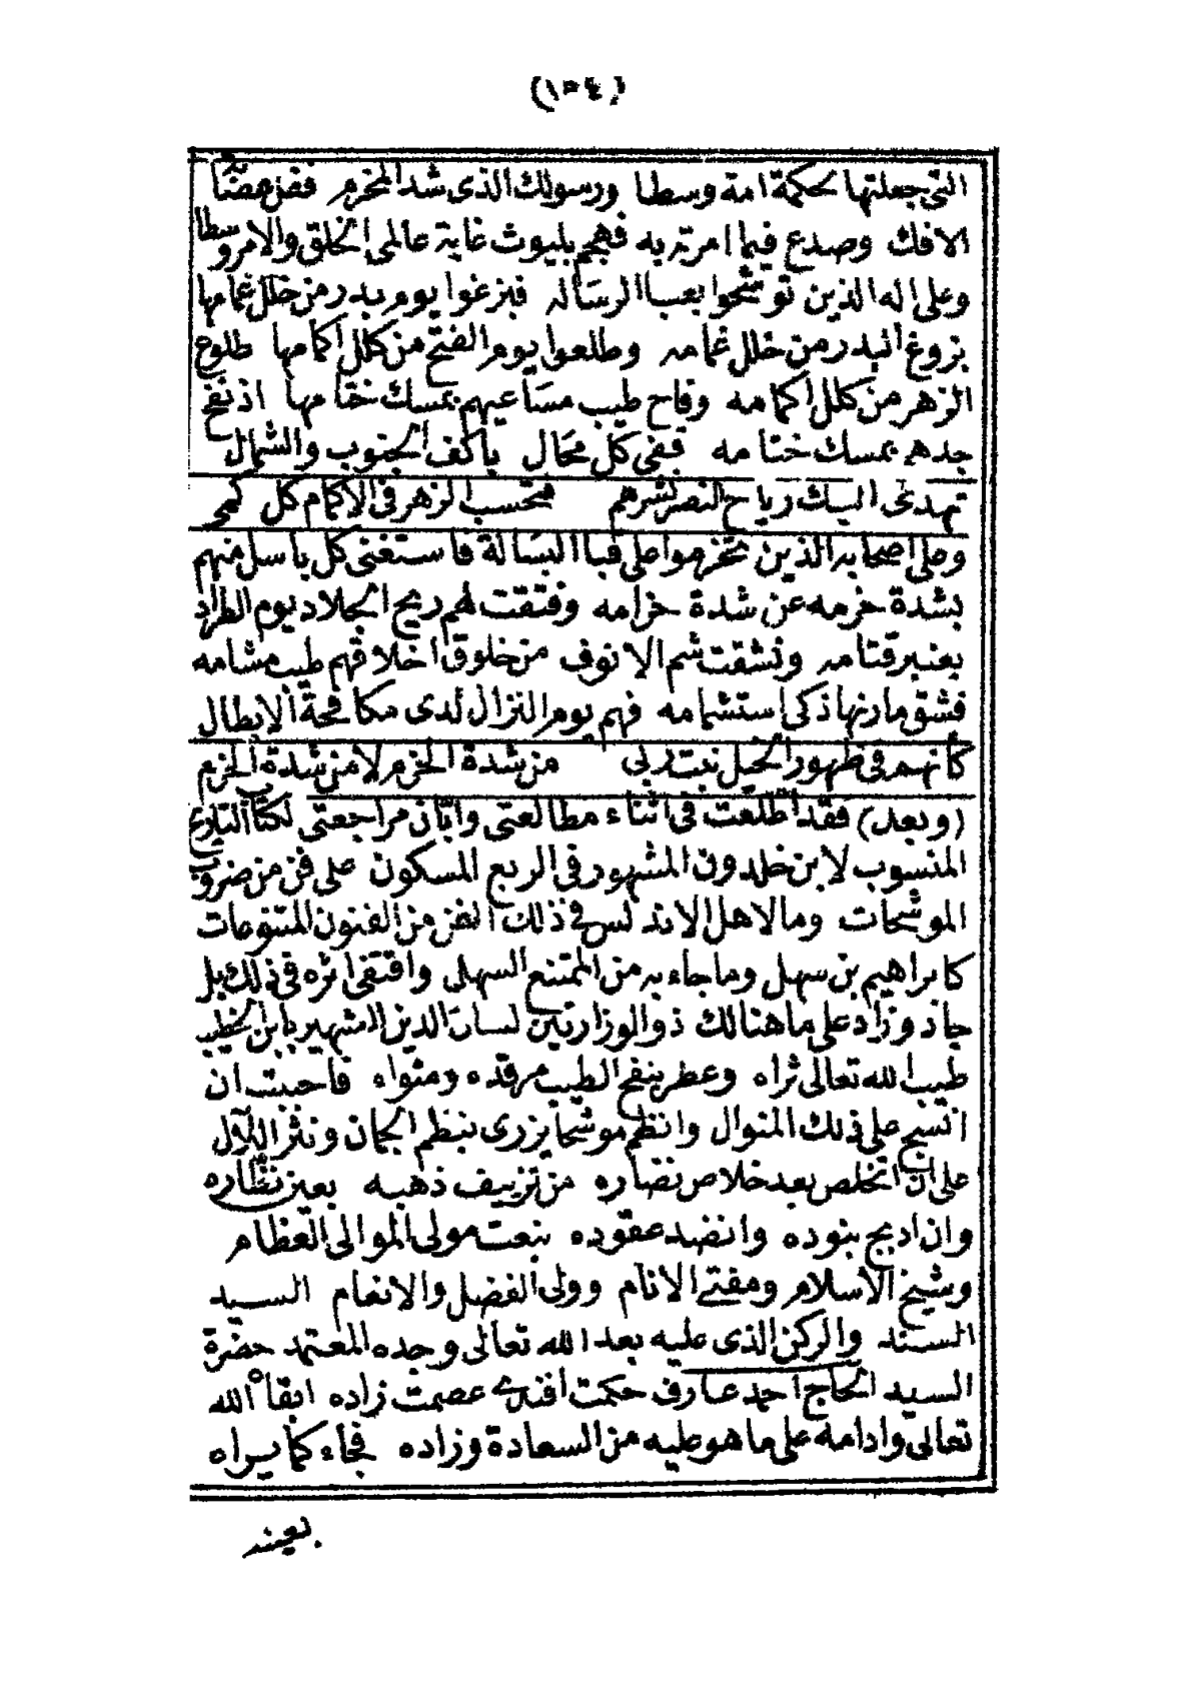 (١٥٤)
التى جعلتها بحكمة امة وسطا ورسولك الذى شد المخزم ففز هضبا
الافك وصدع فيما امرته به فهجم بليوث غابة عالمى الخلق والامر وسطا
وعلى اله الذين توشحوا بعبا الرساله فبزغوا يوم بدر من خلل غمامها
بزوغ البدر من خلل غمامه وطلعوا يوم الفتح من كلل اكمامها طلوع
الزهر من كلل اكمامه وفاح طيب مساعيهم بمسك ختامها اذ نفح
جدهم بمسك ختامه ففى كل مجال باكف الجنوب والشمال
تهدى اليك رياح النصر نشرهم فتحسب الزهر فى الاكمام كل كمى
وعلى اصحابه الذين تحزموا على قبا البسالة فاستغنى كل باسل منهم
بشدة حزمه عن شدة حزامه وفتقت لهم ريح الجلاد يوم الطراد
بعنبر قتامه ونشقت شم الانوف من خلوق اخلاقهم طيب مشامه
فشق مارنها ذكى استشمامه فهم يوم النزال لدى مكافحة الابطال
كأنهم فى ظهور الخيل نبت ربى من شدة الحزم لا من شدة الحزم
(وبعد) فقد اطلعت فى اثناء مطالعتى وابان مراجعتى لكتاب التاريخ
المنسوب لابن خلدون المشهور فى الربع المسكون على فن من ضروب
الموشحات وما لاهل الاندلس فى ذلك الفن من الفنون المتنوعات
كابراهيم بن سهل وما جاء به من الممتنع السهل واقتفى اثره فى ذلك بل
جاز وزاد على ما هنالك ذو الوزارتين لسان الدين الشهير بابن الخطيب
طيب الله تعالى ثراه وعطر بنفح الطيب مرقده ومثواه فاحببت ان
انسج على ذلك المنوال وانظم موشحا يزرى بنظم الجمان ونثر اللآل
على ان اتخلص بعد خلاص نضاره من تزييف ذهبه بعين نظاره
وان ادبج بنوده وانضد عقوده بنعت مولى الموالى العظام
وشيخ الاسلام ومفتى الانام وولى الفضل والانعام السيد
السند والركن الذى عليه بعد الله تعالى وحده المعتمد حضرة
السيد الحاج احمد عارف حكمت افندى عصمت زاده ابقاه الله
تعالى وادامه على ما هو عليه من السعادة وزاده فجاء كما يراه